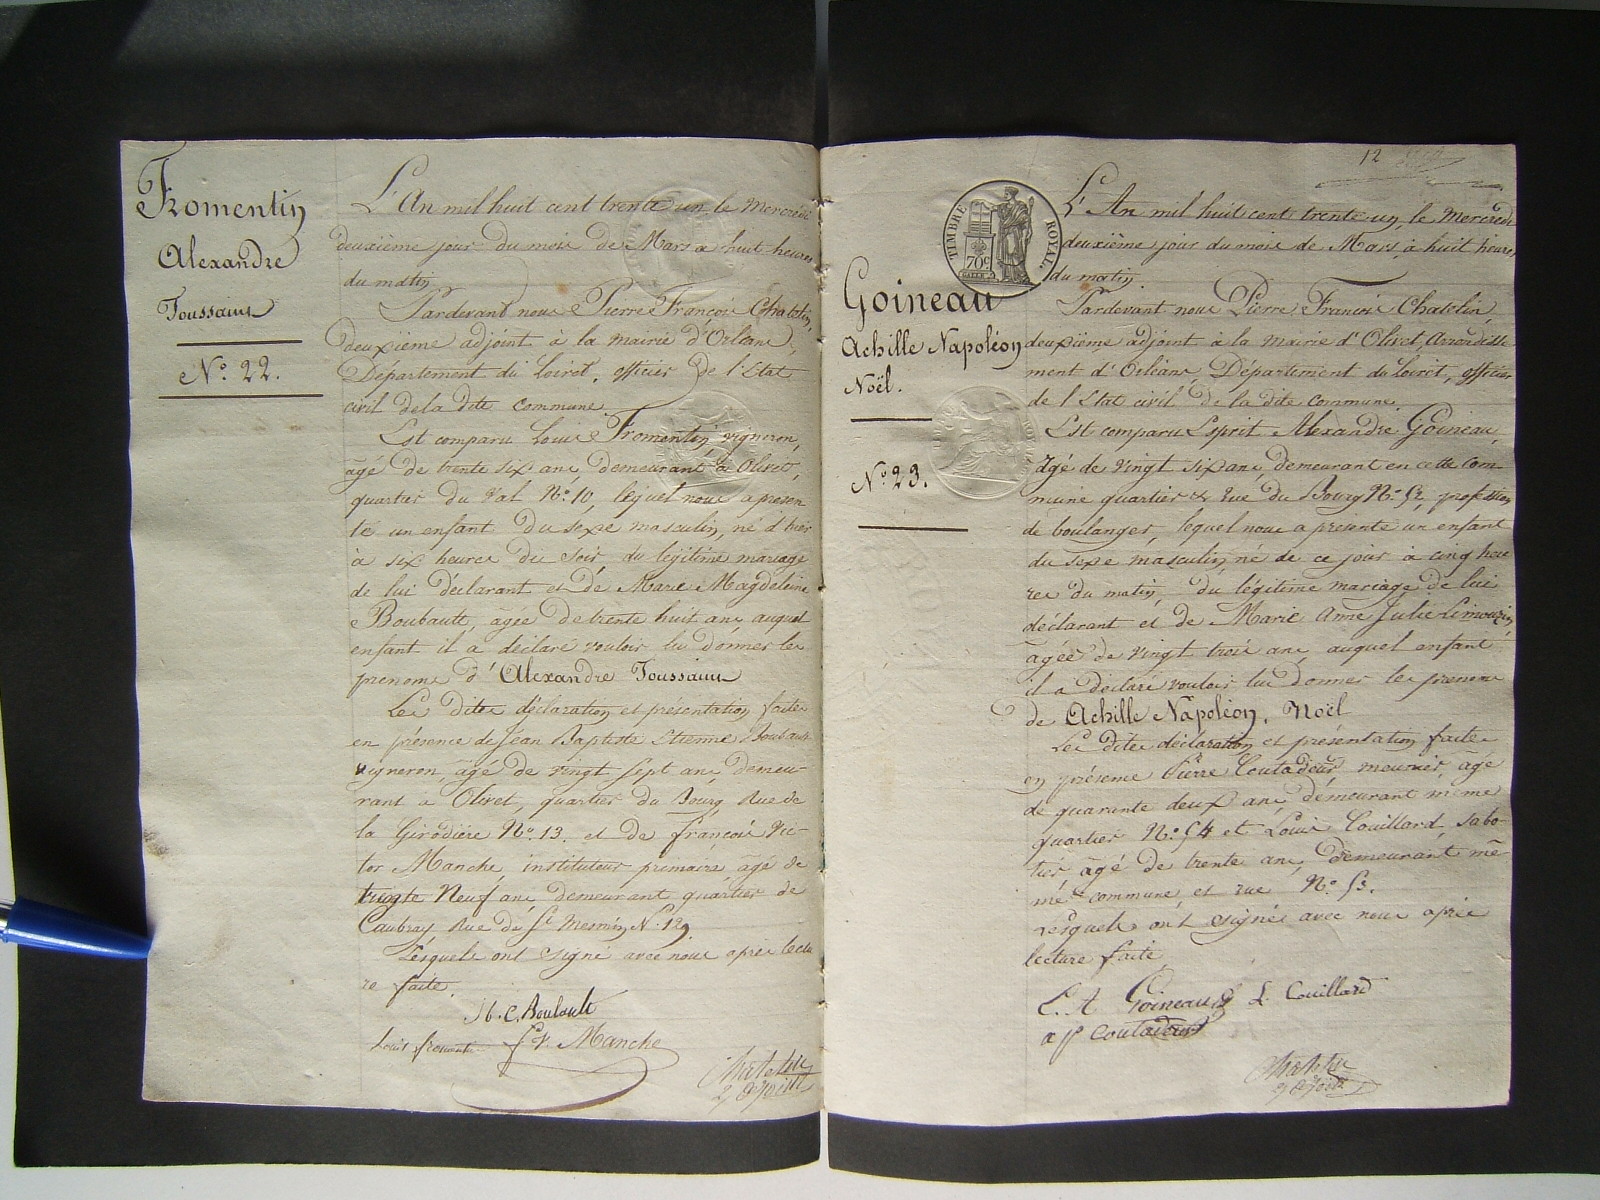 Fromentin
Alexandre
Toussaint
N.º 22.
L'An mil huit cent trente un, le Mercredi
deuxième jour du mois de Mars à huit heures
du matin,
Pardevant nous Pierre François Chatelin,
deuxième adjoint à la mairie d'Orléans,
Département du Loiret, officier de l'Etat
civil de la dite commune.
Est comparu Louis Fromentin, vigneron,
âgé de trente six ans, demeurant à Olivet,
quartier du Val N.º 10, lequel nous a présen
té un enfant du sexe masculin, né d'hier
à six heures du soir du légitime mariage
de lui déclarant et de Marie Magdeleine
Boubault, âgée de trente huit ans, auquel
enfant il a déclaré vouloir lui donner les
prénoms d'Alexandre Toussaint
Les dites déclaration et présentation faites
en présence de Jean Baptiste Etienne Boubault
vigneron, âgé de vingt sept ans, demeu-
rant à Olivet, quartier du Bourg, Rue de
la Girodière N.º 13. et de françois Vic-
tor Manche, instituteur primaire, âgé de
Neuf ans, demeurant quartier de
Caubray Rue de St Mesmin N.º 129
Lesquels ont signé avec nous après lectu
re faite.
J b. E. Boubault
Louis fromentin F. V. Manche
Chatelin
2e adjoint
12
TIMBRE ROYAL
70c
Goineau
Achille Napoléon
Noël.
N.º 23.
L'An mil huit cent trente un, le Mercredi
deuxième jour du mois de Mars, à huit heures
du matin,
Pardevant nous Pierre François Chatelin,
deuxième adjoint à la mairie d'Olivet, Arrondisse
ment d'Orléans, Département du Loiret, officier
de l'Etat civil de la dite commune.
Est comparu Esprit Alexandre Goineau,
âgé de vingt six ans, demeurant en cette com-
mune quartier & rue du Bourg N.º 52, profession
de boulanger, lequel nous a présenté un enfant
du sexe masculin né de ce jour à cinq heu
res du matin, du légitime mariage de lui
déclarant et de Marie Anne Julie Limouzin,
âgée de vingt trois ans, auquel enfant
il a déclaré vouloir lui donner les prénoms
de Achille Napoléon, Noël
Les dites déclaration et présentation faites
en présence Pierre Coutadeur meunier, âgé
de quarante deux ans, demeurant même
quartier N.º 54 et Louis Couillard, sabo-
tier âgé de trente ans, demeurant mê-
me commune, et rue N.º 53.
Lesquels ont signés avec nous après
lecture faite,
E. A Goineau L. Couillard
a P Coutadeur
Chatelin
2e adjoint